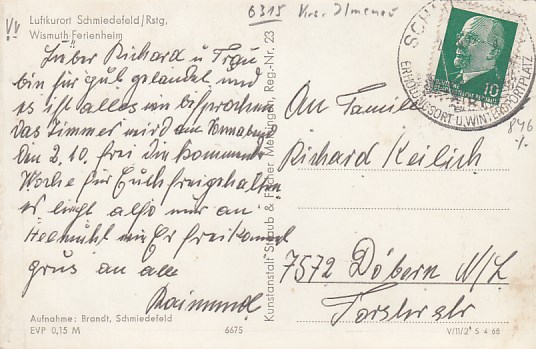 Luftkurort Schmiedefeld/Rstg.
Wismuth-Ferienheim
6315 Krs. Ilmenau
Lieber Richard u Trau
bin für gut gelandet und
es ist alles wie besprochen
das Zimmer wird am Sonnabend
den 2.10. frei die kommende
Woche für Euch freigehalten
es liegt also nur an
Hellmuht wie Er freikommt
grus an alle
Raimund
An Familie
Richard Keilich
7572 Döbern N/L
Forsterstr
10
ERHOLUNGSORT U. WINTERSPORTPLATZ
846
Kunstanstalt Straub & Fischer Meiningen, Reg.-Nr. 23
Aufnahme: Brandt, Schmiedefeld
EVP 0,15 M
6675
V/11/2 S 4 68